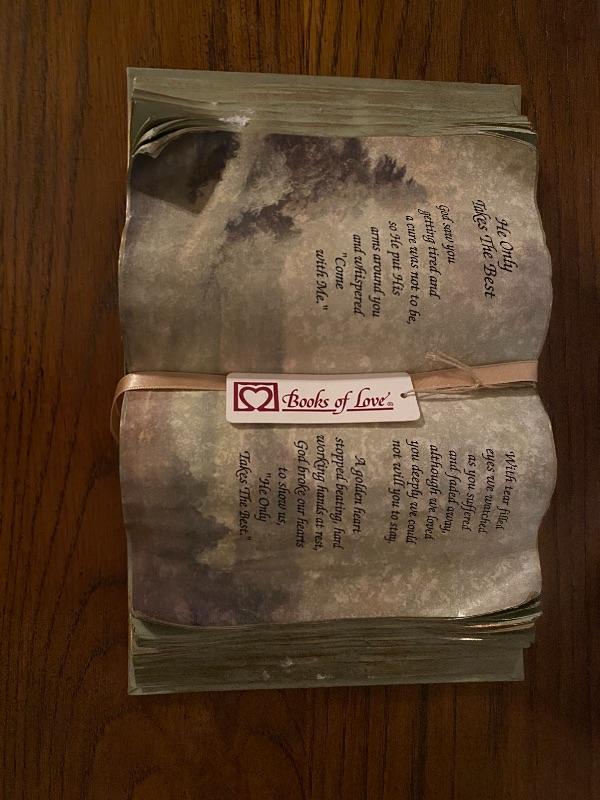 He Only
Takes The Best
God saw you
getting tired and
a cure was not to be,
so He put His
arms around you
and whispered
"Come
with Me."
With tear filled
eyes we watched
as you suffered
and faded away,
although we loved
you deeply we could
not will you to stay.
A golden heart
stopped beating, hard
working hands at rest,
God broke our hearts
to show us,
"He Only
Takes The Best."
Books of Love®